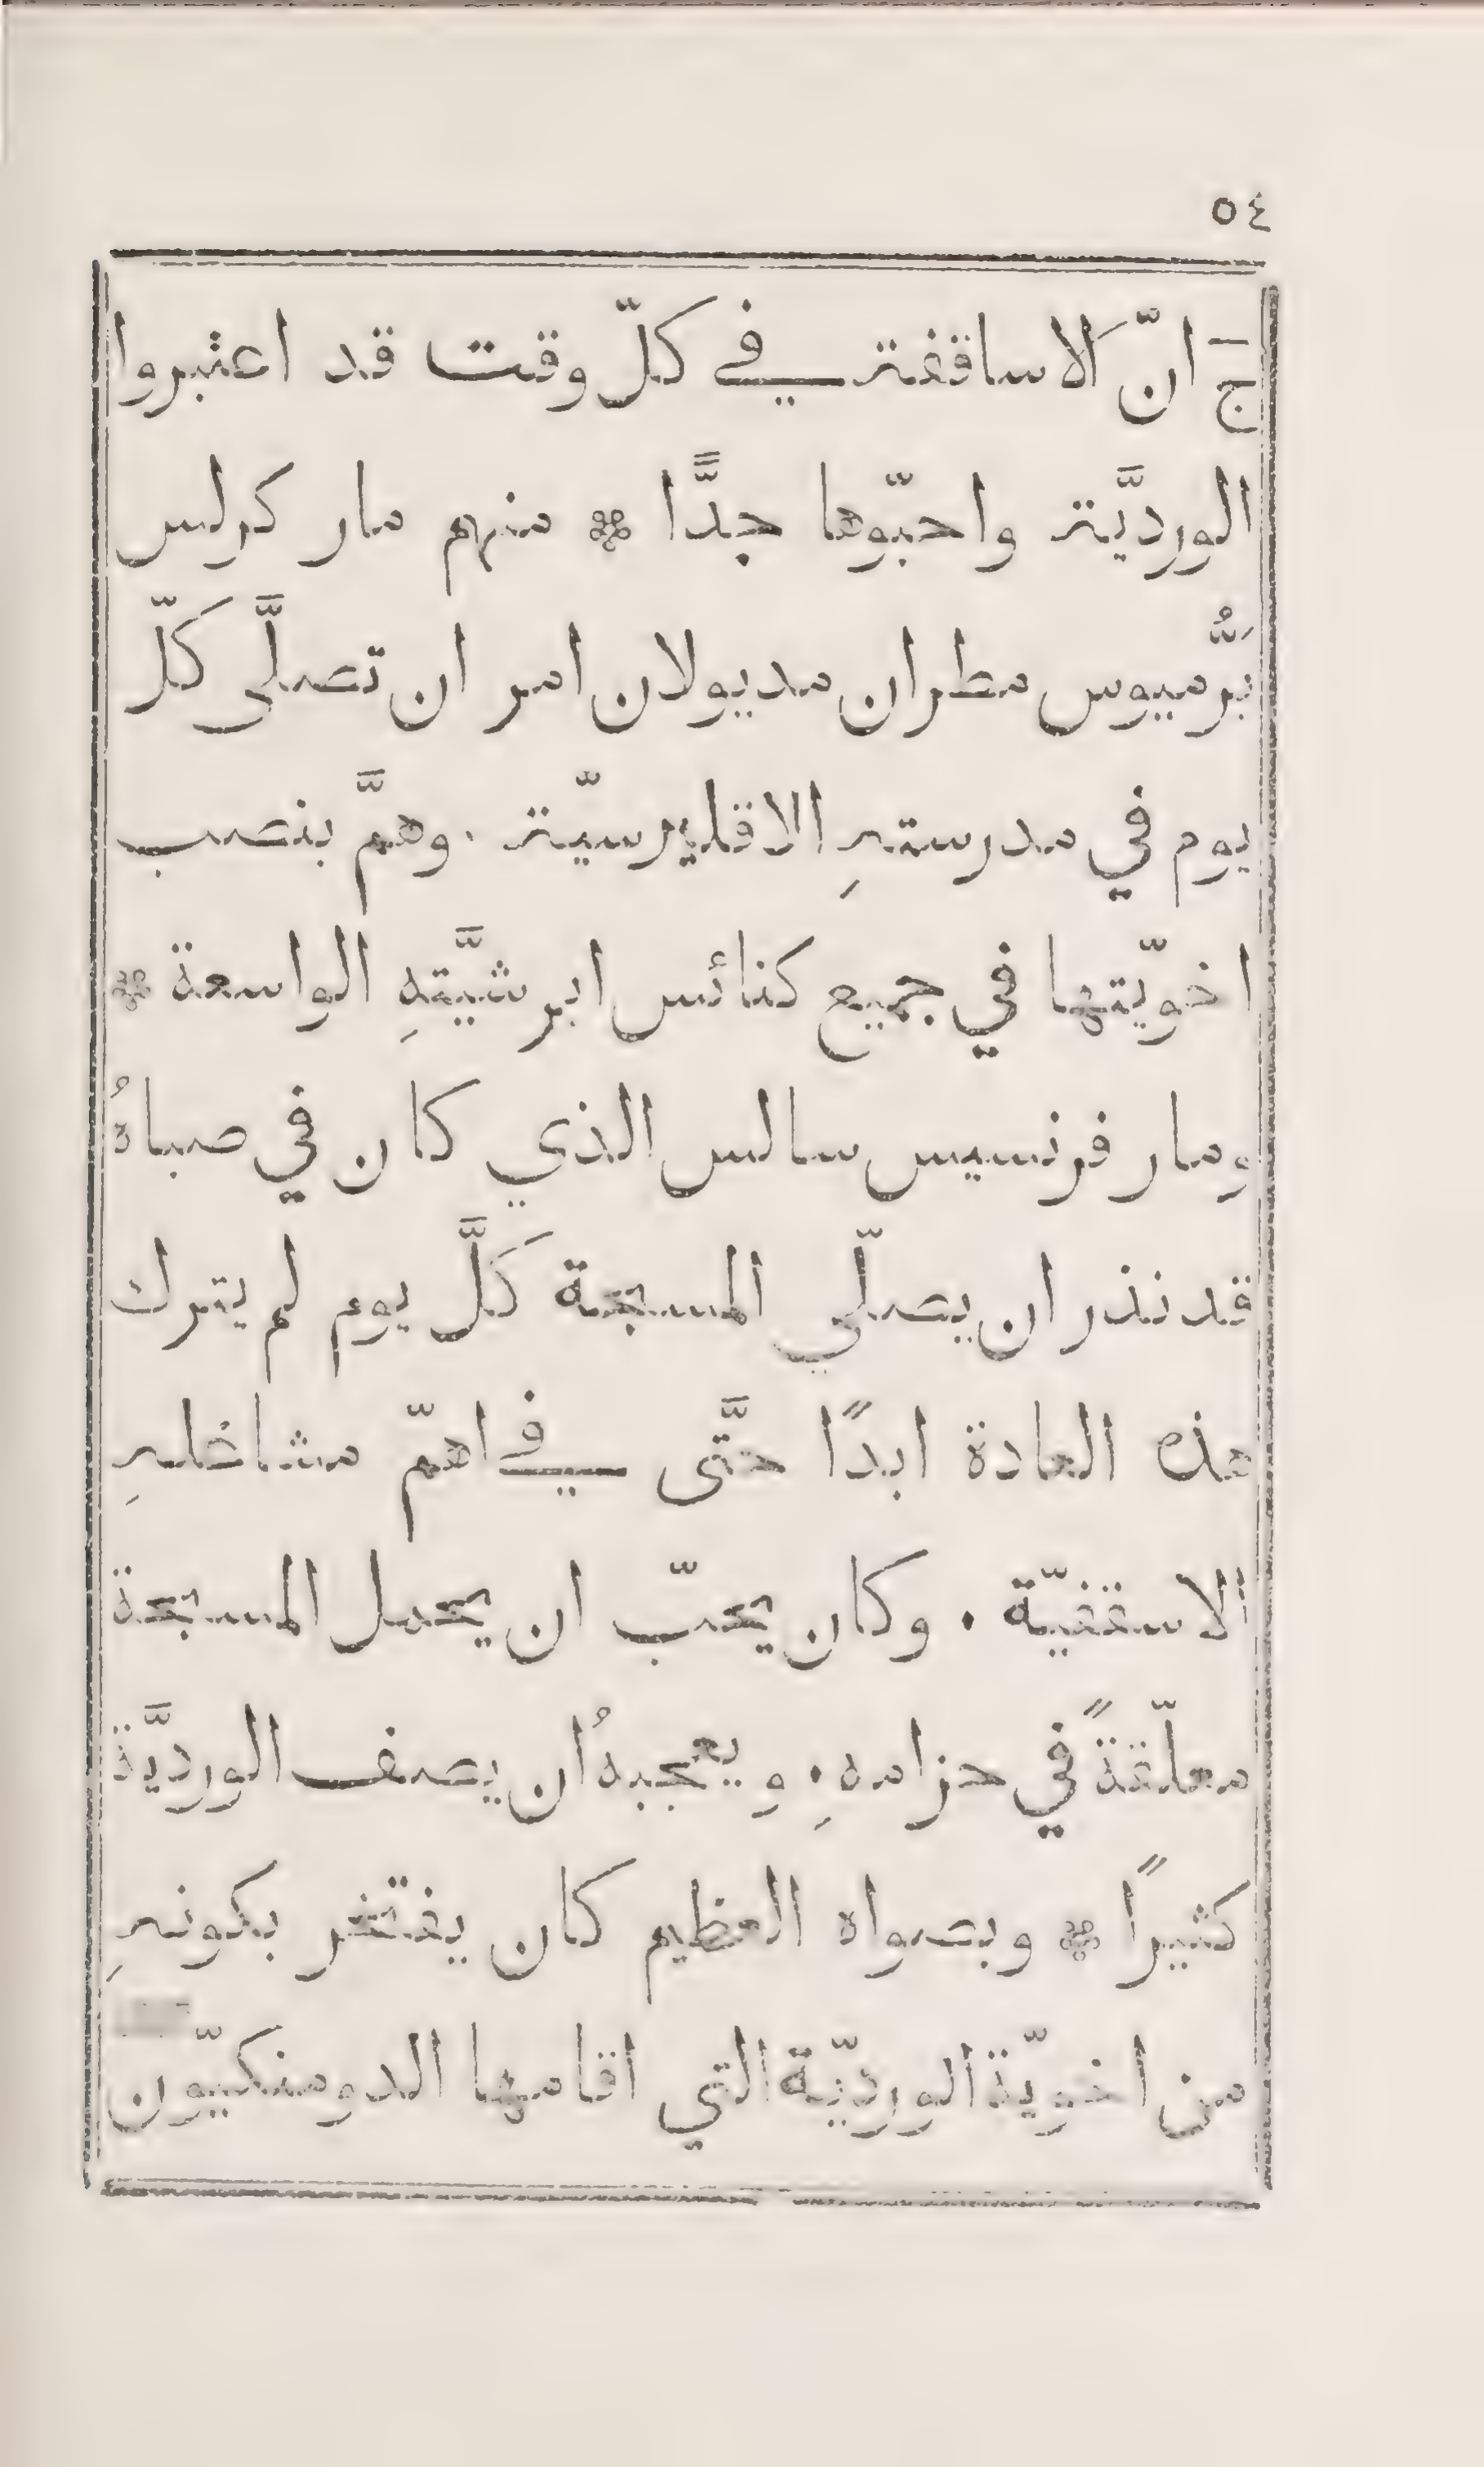 ٥٤
ج انّ الاساقفة في كلّ وقت قد اعتبروا
الورديَّة واحبّوها جدًّا ❊ منهم مار كرلس
برُّميوس مطران مديولان امر ان تصلَّى كلّ
يوم في مدرستهِ الاقليرسيّة . وهمَّ بنصب
اخويّتها في جميع كنائس ابرشيَّتهِ الواسعة ❊
ومار فرنسيس سالس الذي كان في صباهُ
قد نذر ان يصلّي المسبحة كلَّ يوم لم يترك
هذه العادة ابدًا حتَّى في اهمّ مشاغلهِ
الاسقفيّة . وكان يحبّ ان يحمل المسبحة
معلّقةً في حزامهِ . ويعجبهُ ان يصف الورديَّة
كثيرًا ❊ وبصواه العظيم كان يفتخر بكونهِ
من اخويّة الورديّة التي اقامها الدومنكيّون